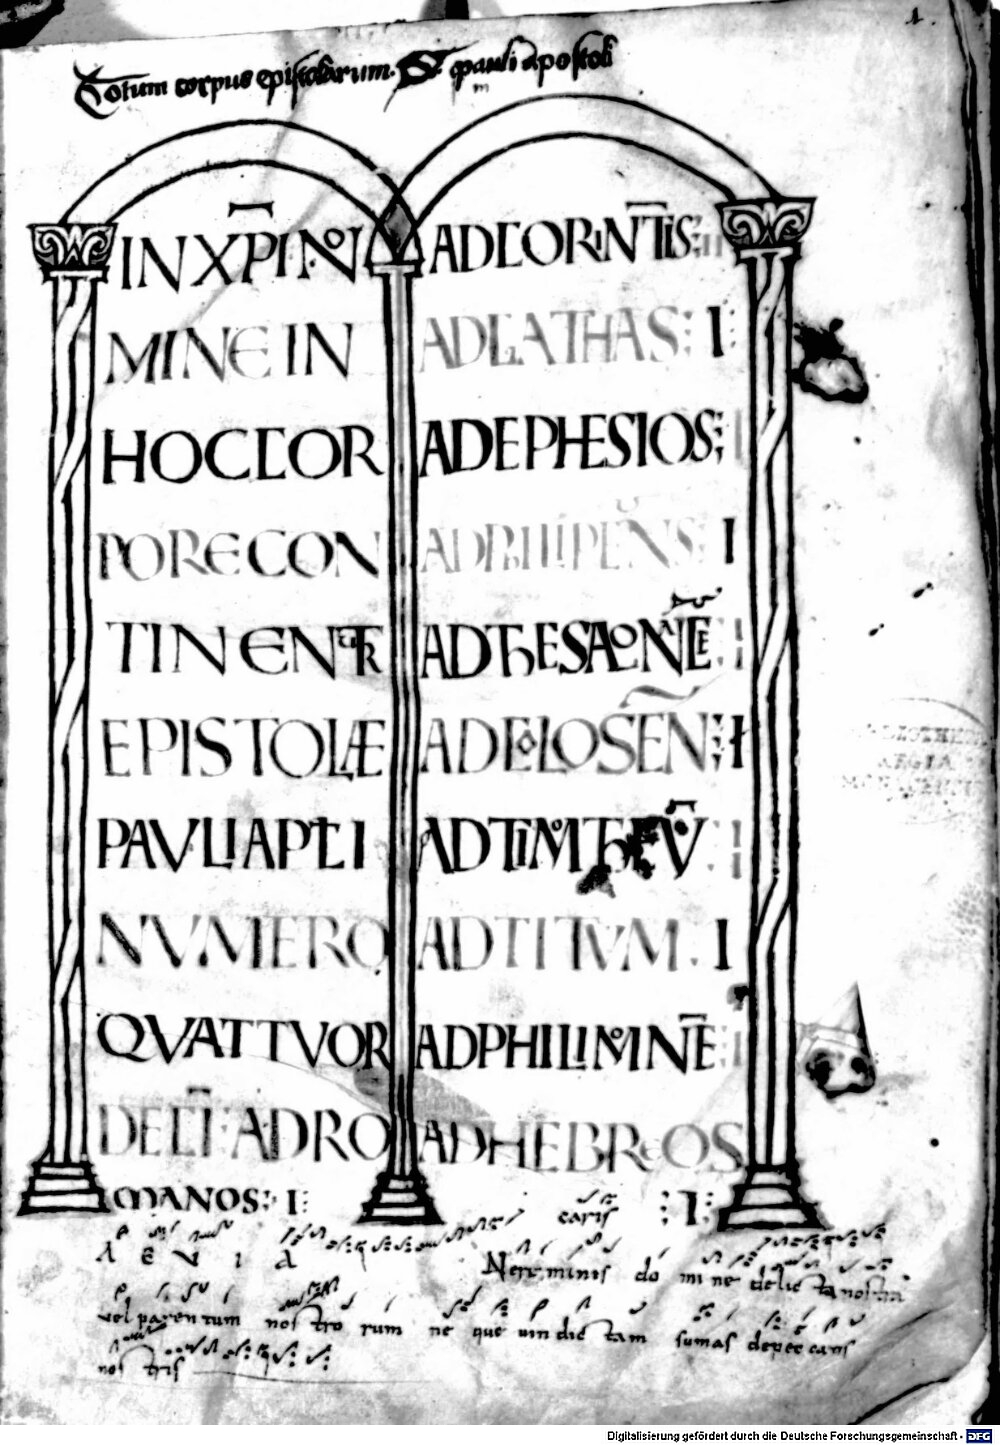 1.
Totum corpus epistolarum S. pauli apostoli
IN XP̅I NO
MINE IN
HOC COR
PORE CON
TINENTR
EPISTOLÆ
PAVLI APŁI
NVMERO
QVATTVOR
DECI̅ AD RO
MANOS: I:
AD CORINT̅IS: II
AD GALATHAS: I:
AD EPHESIOS: I
AD PHILIPENS I
AD THESALONICE : I
AD COLOSEN̅: I
AD TIMOTHEV̅ : II
AD TITVM . I
AD PHILIMONE̅ I
AD HEBREOS
: I :
caris
A E V I A
Ne reminis do mine delic ta nostra
vel parentum nostro rum ne que uin dic tam sumas de pec catis
nos tris
REGIA
Digitalisierung gefördert durch die Deutsche Forschungsgemeinschaft - DFG